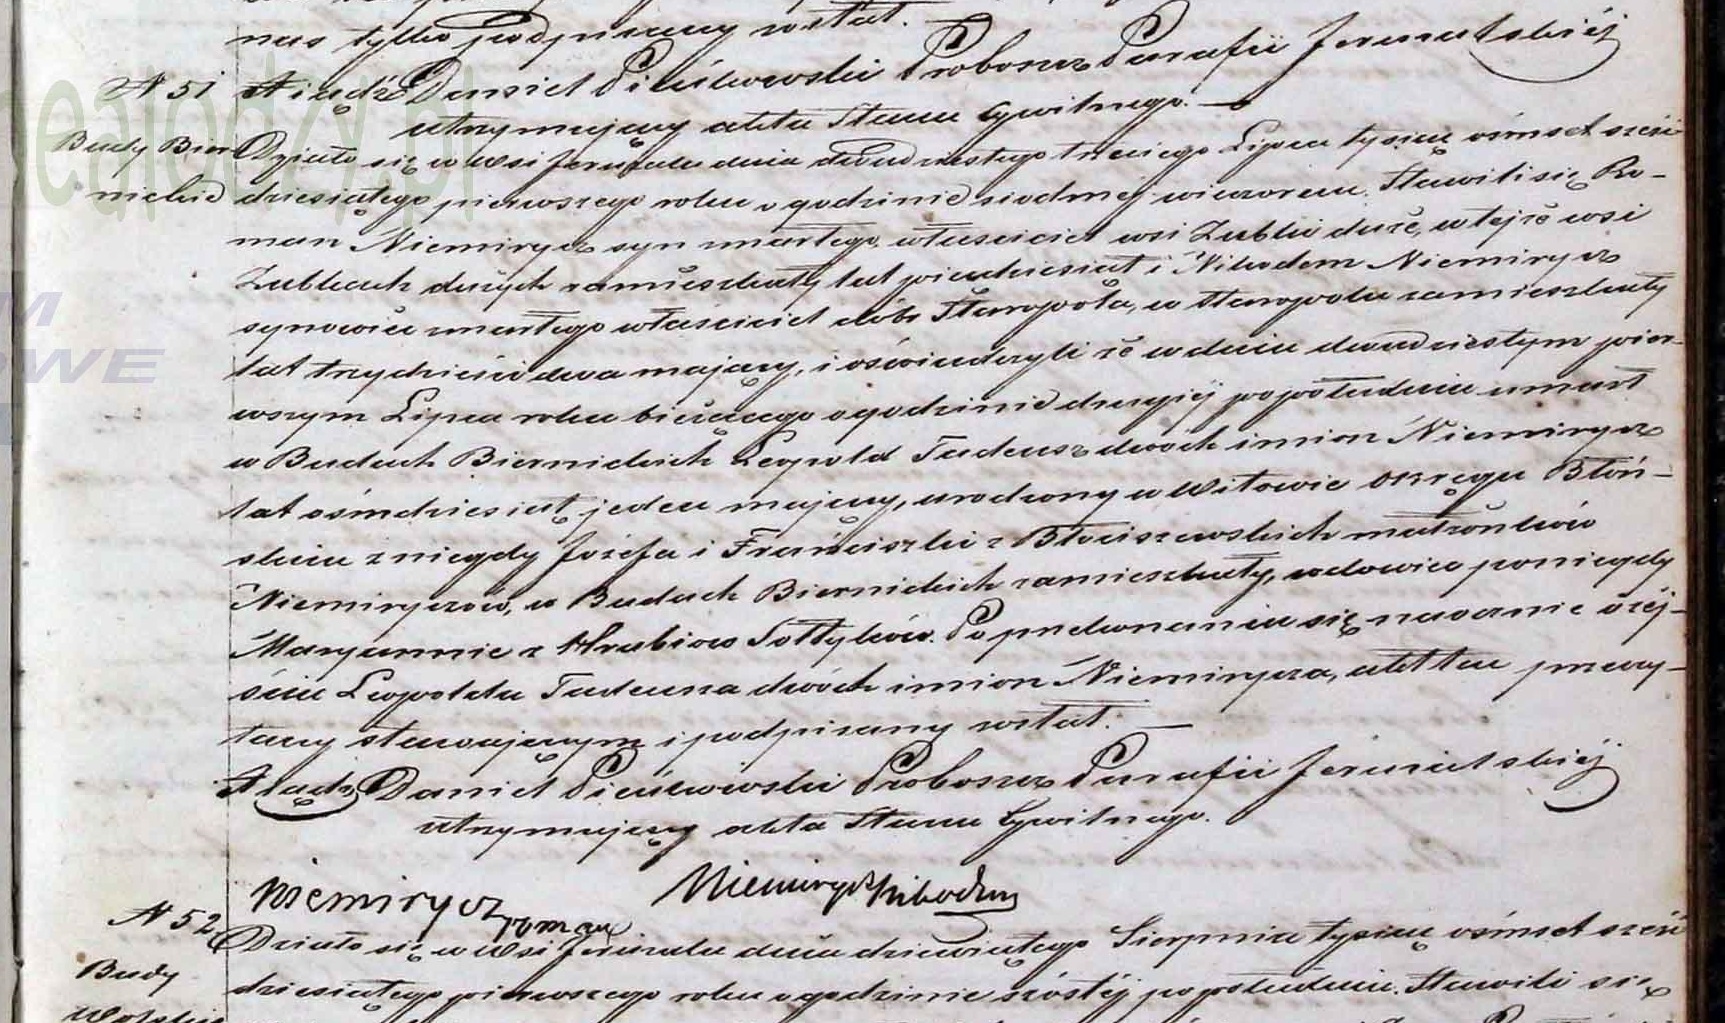 nas tylko podpisany został.
N 51 Xiądz Daniel Pieńkowski Proboszcz Parafii Jeruzalskiéj
utrzymujący akta Stanu Cywilnego.
Budy Bier
nickie
Działo się w Wsi Jeruzalu dnia dwudziestego trzeciego Lipca tysiąc ośmset sześć
dziesiątego pierwszego roku o godzinie siódméj wieczorem. Stawili się Ro-
man Niemirycz syn zmarłego, właściciel wsi Lublic duże, w tejże wsi
zamieszkały lat pięćdziesiąt i Nikodem Niemirycz
synowiec zmarłego właściciel dóbr Staropola, w Staropolu zamieszkały
lat trzydzieści dwa mający, i oświadczyli że w dniu dwudziestym pier-
wszym Lipca roku bieżącego o godzinie drugiéj po południu umarł
w Budach Biernickich Leopold Tadeusz dwóch imion Niemirycz
lat ośmdziesiąt jeden mający, urodzony w Witowie Okręgu Błoń-
skim z niegdy Józefa i Franciszki z Błociszewskich małżonków
Niemiryczów, w Budach Biernickich zamieszkały, wdowiec po niegdy
Maryannie z Hrabiów Sołtyków. Po przekonaniu się naocznie o zéj-
ściu Leopolda Tadeusza dwóch imion Niemirycza, akt ten przeczy-
tany stawającym i podpisany został.
Xiądz Daniel Pieńkowski Proboszcz Parafii Jeruzalskiéj
utrzymujący akta Stanu Cywilnego.
Niemirycz Roman
Niemirycz Nikodem
N 52
Budy
Wolskie
Działo się w Wsi Jeruzalu dnia dziewiątego Sierpnia tysiąc ośmset sześć
dziesiątego pierwszego roku o godzinie szóstéj po południu. Stawili się